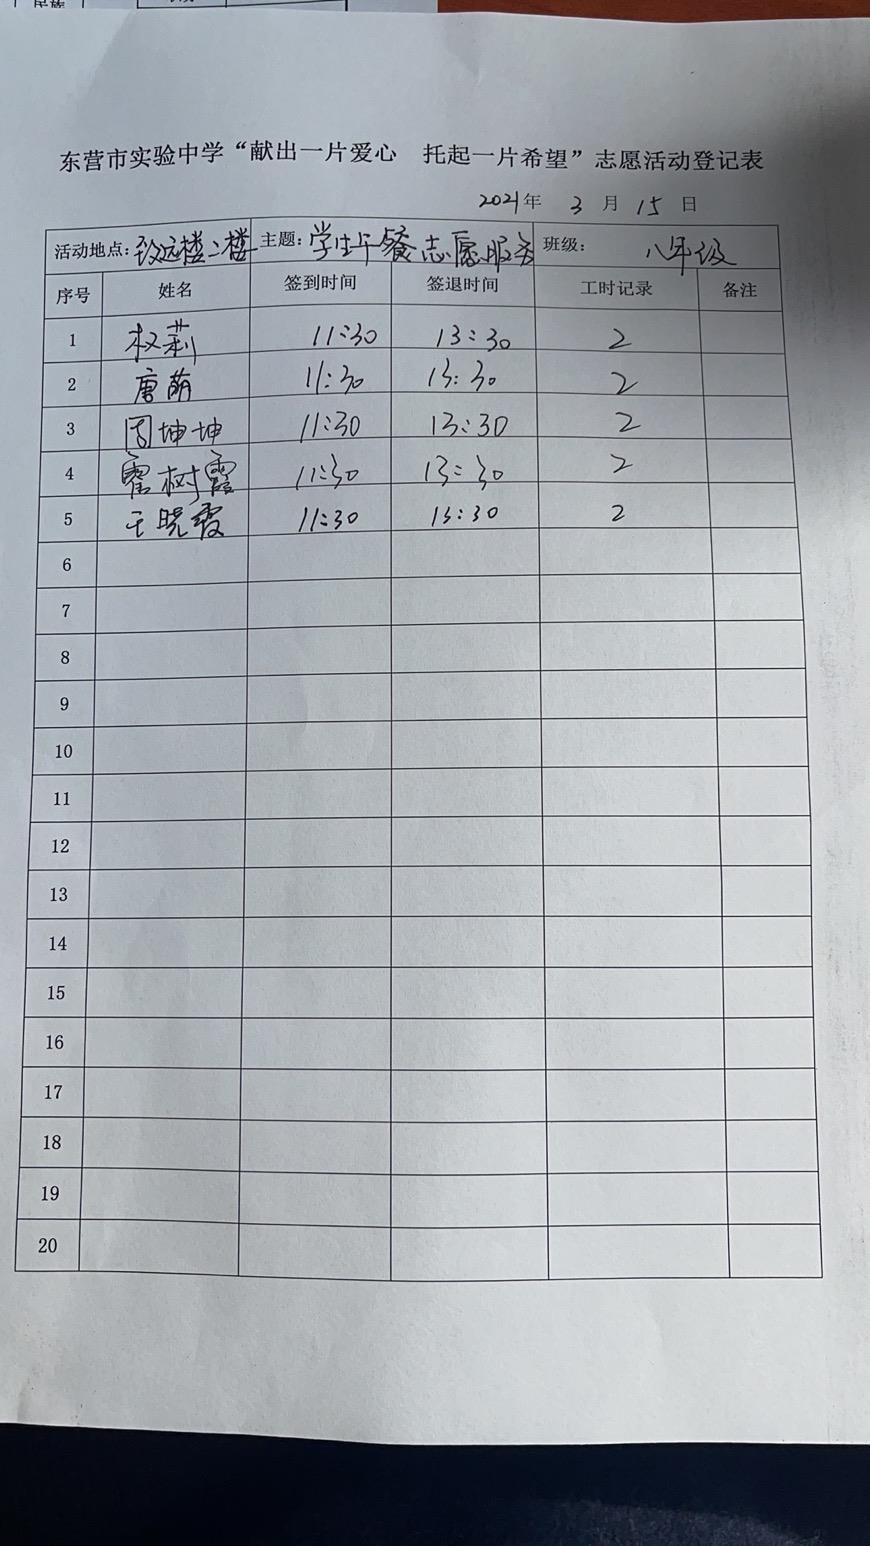 民族
东营市实验中学“献出一片爱心 托起一片希望”志愿活动登记表
2021年 3 月 15 日
活动地点:致远楼二楼 主题:学生午餐志愿服务 班级: 八年级
序号 姓名 签到时间 签退时间 工时记录 备注
1 权莉 11:30 13:30 2
2 唐萌 11:30 13:30 2
3 周坤坤 11:30 13:30 2
4 霍树霞 11:30 13:30 2
5 王晓霞 11:30 13:30 2
6
7
8
9
10
11
12
13
14
15
16
17
18
19
20